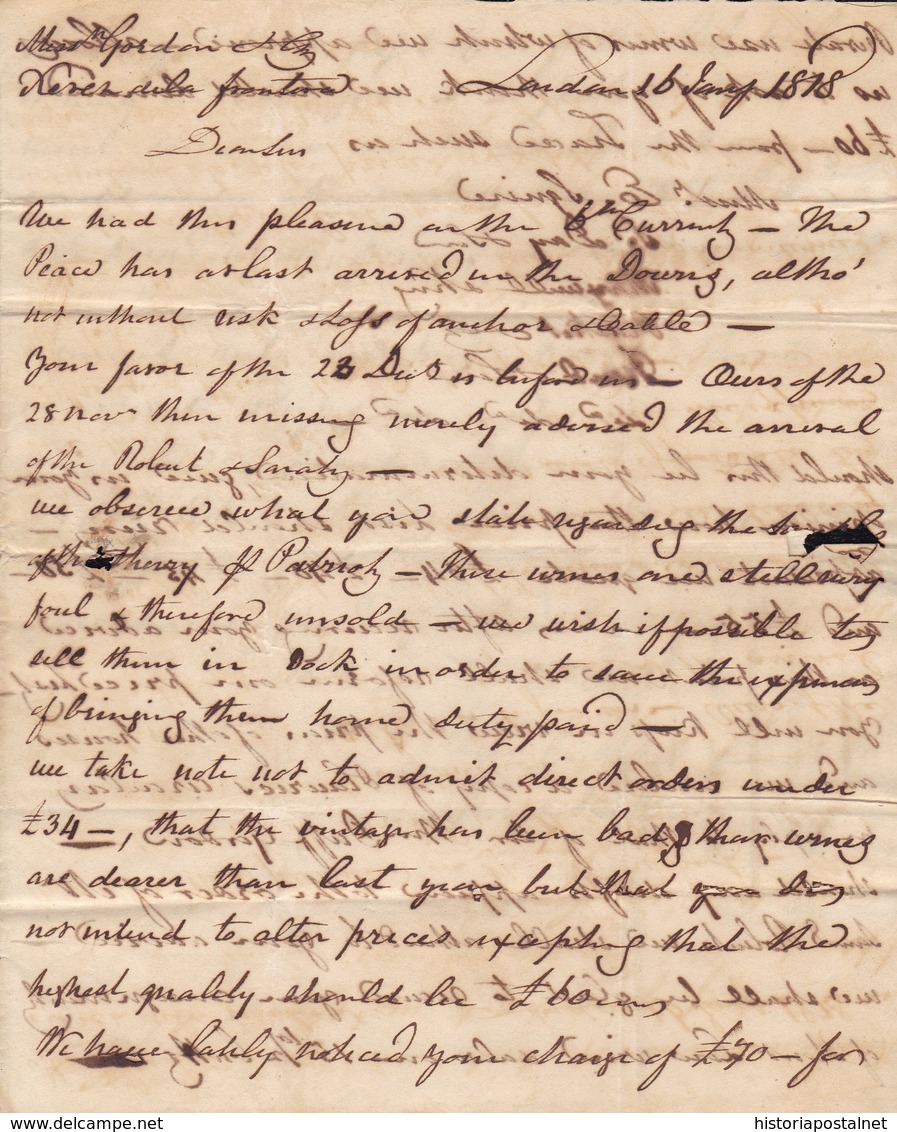 Messrs Gordon & Co
Xerez de la frontera London 16 Jany 1818
Dear Sirs
We had this pleasure on the 6th Current — The
Peace has at last arrived in the Downs, altho'
not without risk & loss of anchor & Cable —
Your favor of the 23 Decr is before us — Ours of the
28 Novr then missing merely advised the arrival
of the Robert & Sarah —
we observe what you state regarding the
of the sherry P Patriot — These wines are still very
foul & therefore unsold — we wish if possible to
sell them in Dock in order to save the expences
of bringing them home duty paid —
we take note not to admit direct orders under
£34 —, that the vintage has been bad & that wines
are dearer than last year but that you do
not intend to alter prices excepting that the
highest quality should be £60
We have lately noticed your charge of £70 — for
historiapostalnet